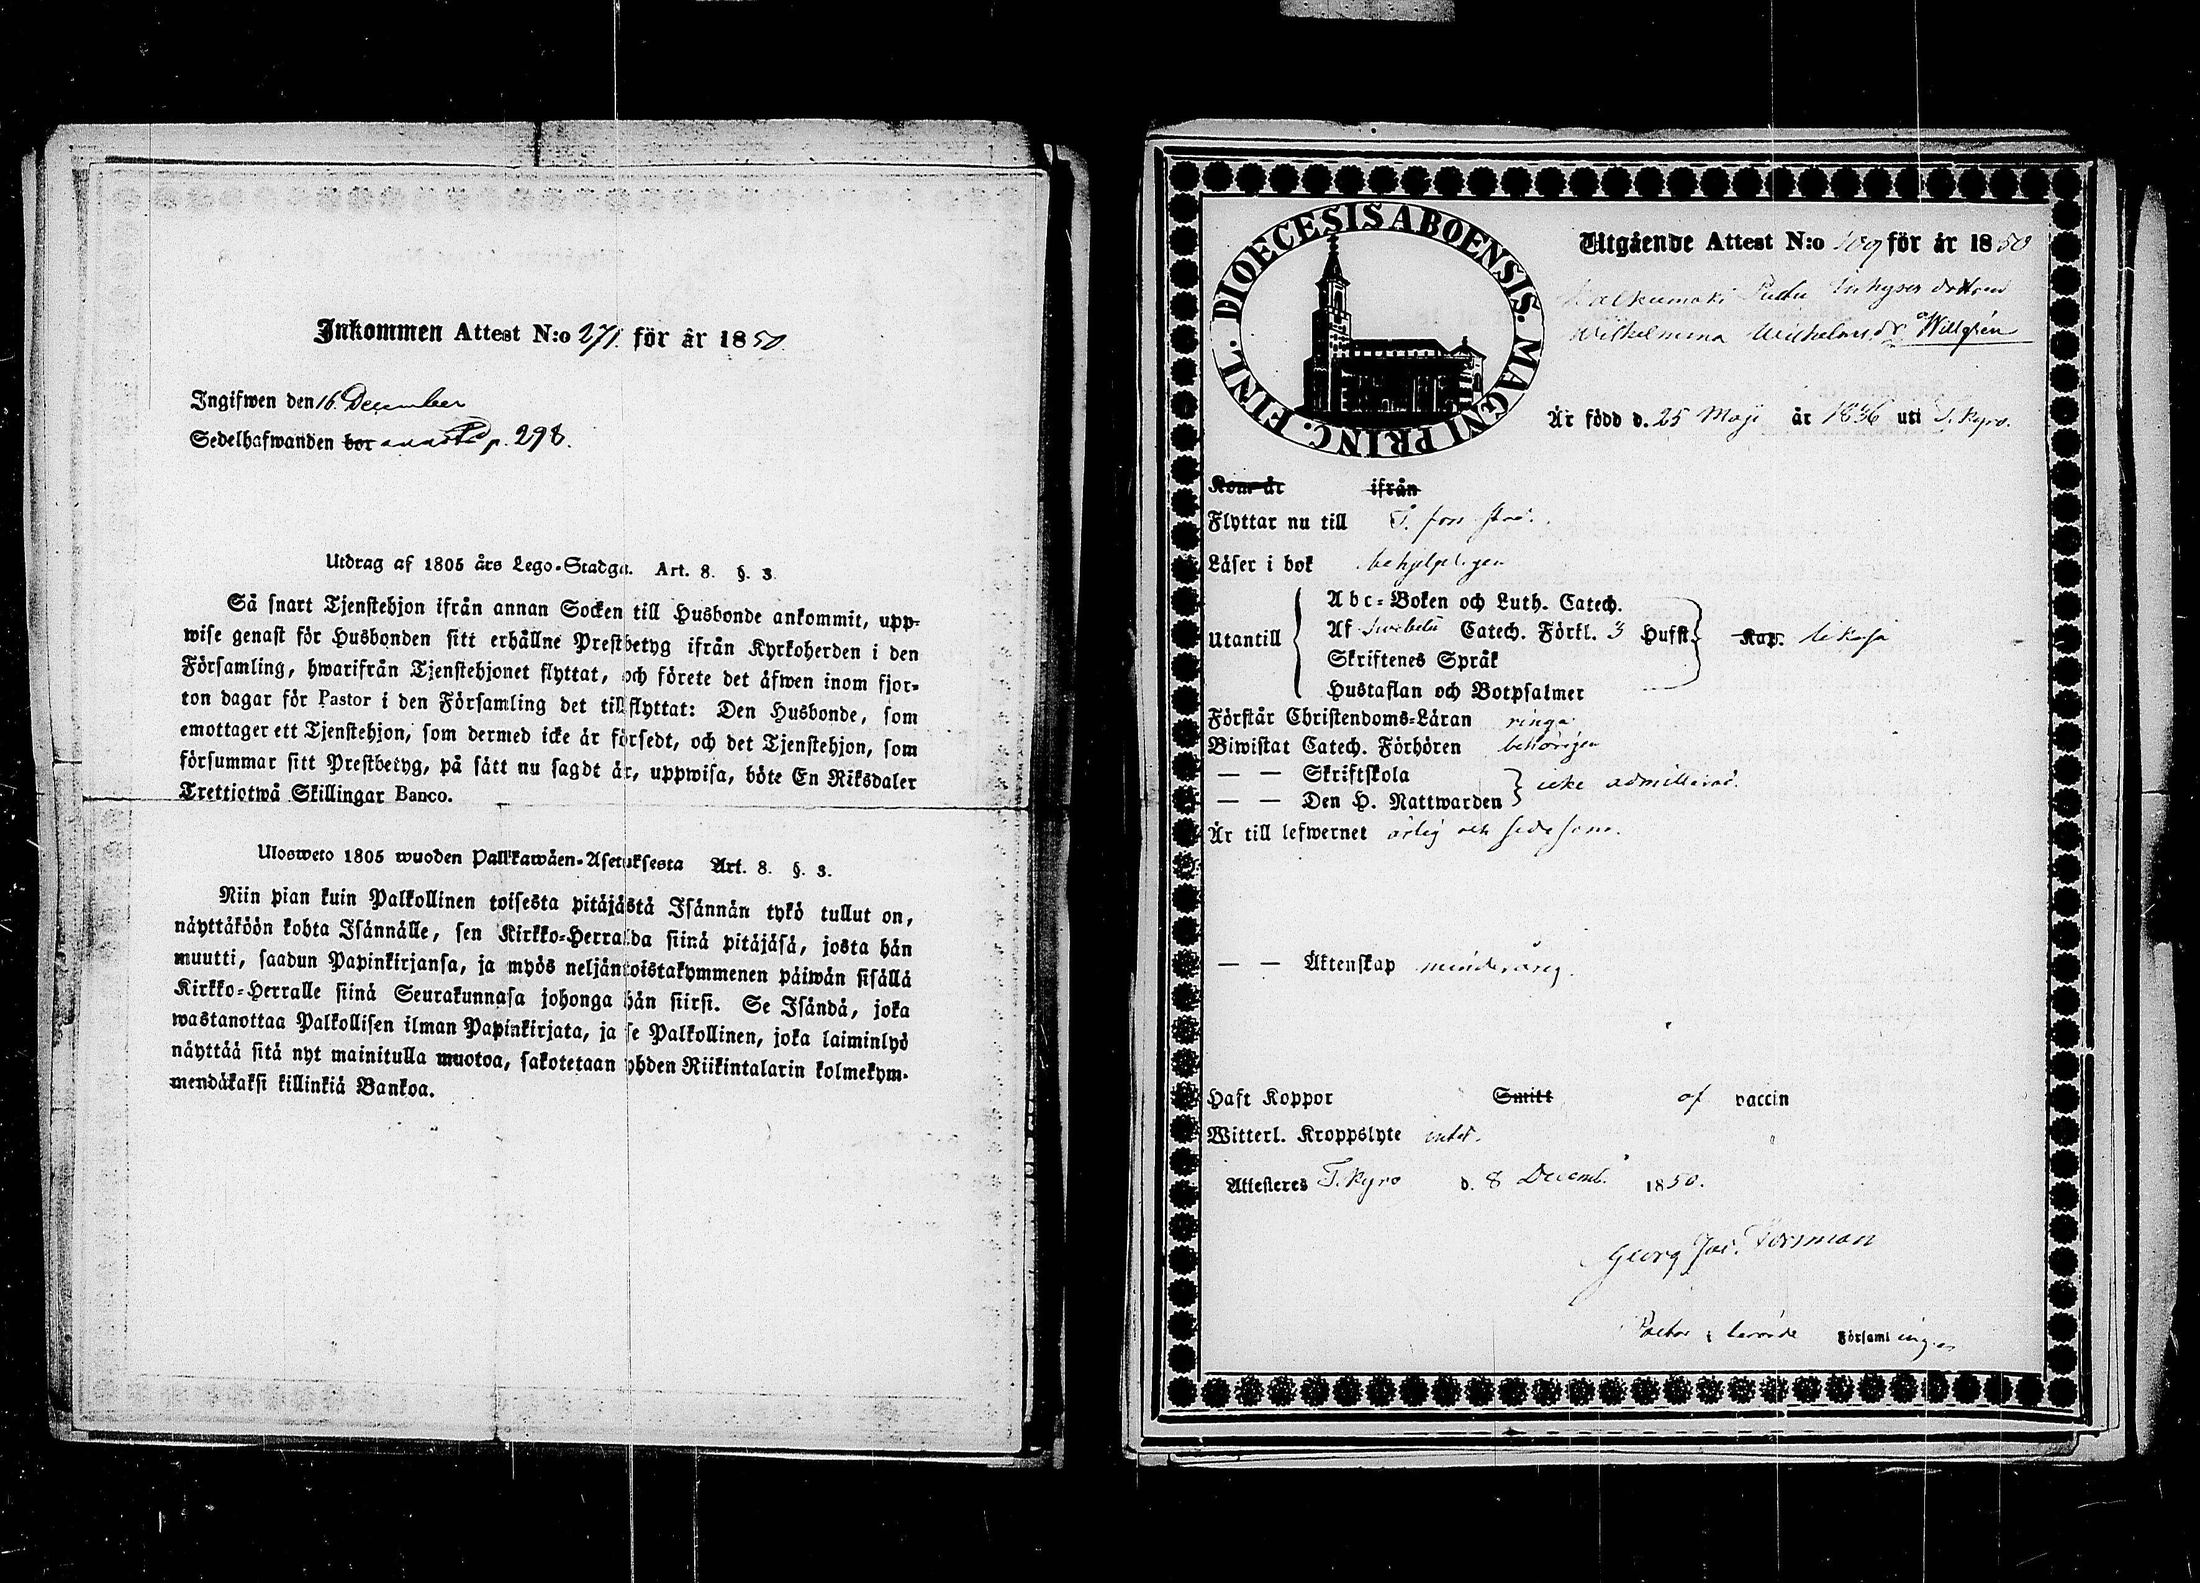 Inkommen Attest N:o 271. för år 1850.
Ingifwen den 16 December
Sedelhafwanden bor p. 298.
Utdrag af 1805 års Lego-Stadga. Art. 8. §. 3.
Så snart Tjenstehjon ifrån annan Socken till Husbonde ankommit, upp-
wise genast för Husbonden sitt erhållne Prestbetyg ifrån Kyrkoherden i den
Församling, hwarifrån Tjenstehjonet flyttat, och förete det äfwen inom fjor-
ton dagar för Pastor i den Församling det tillflyttat: Den Husbonde, som
emottager ett Tjenstehjon, som dermed icke är försedt, och det Tjenstehjon, som
försummar sitt Prestbetyg, på sätt nu sagdt är, uppwisa, böte En Riksdaler
Trettiotwå Skillingar Banco.
Ulosweto 1805 wuoden Palkkawäen-Asetuksesta Art. 8. §. 3.
Niin pian kuin Palkollinen toisesta pitäjästä Isännän tykö tullut on,
näyttäköön kohta Isännälle, sen Kirkko-Herralda siinä pitäjäsä, josta hän
muutti, saadun Papinkirjansa, ja myös neljäntoistakymmenen päiwän sisällä
Kirkko-Herralle siinä Seurakunnasa johonga hän siirsi. Se Isändä, joka
wastanottaa Palkollisen ilman Papinkirjata, ja se Palkollinen, joka laiminlyö
näyttää sitä nyt mainitulla muotoa, sakotetaan yhden Riikintalarin kolmekym-
mendäkaksi killinkiä Bankoa.
DIOECESIS ABOENSIS. MAGNI PRINC. FINL.
Utgående Attest N:o 109 för år 1850
Inhyses dottren
Wilhelmina Wilhelmsdr Willgrén
Är född d. 25 Maji år 1836 uti T. Kyro.
Kom år ifrån
Flyttar nu till T. fors stad.
Läser i bok behjelpligen
Utantill
Abc-Boken och Luth. Catech.
Af Swebelii Catech. Förkl. 3 Hufst. Kap.
Skriftenes Språk
Hustaflan och Botpsalmer
Förstår Christendoms-Läran ringa
Biwistat Catech. Förhören behörigen
— — Skriftskola
— — Den H. Nattwarden icke admitterad.
Är till lefwernet ärlig och sedesam.
— — Äktenskap minderårig.
Haft Koppor Smitt af vaccin
Witterl. Kroppslyte intet.
Attesteres T. Kyro d. 8 Decemb. 1850.
Georg Jac. Forsman
Pastor i berörde Församlingen